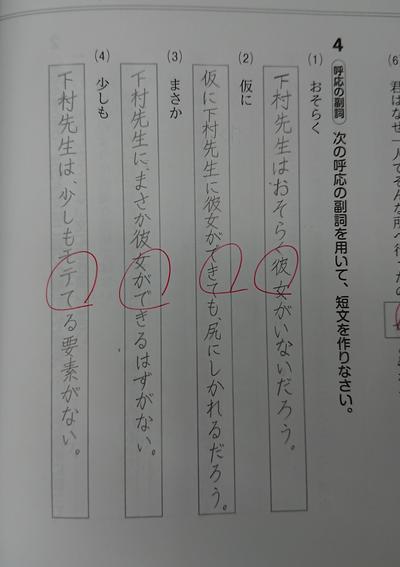 (6)
君はなぜ一人でそんな所へ行ったの
4 呼応の副詞 次の呼応の副詞を用いて、短文を作りなさい。
(1) おそらく
下村先生はおそらく彼女がいないだろう。
(2) 仮に
仮に下村先生に彼女ができても、尻にしかれるだろう。
(3) まさか
下村先生に、まさか彼女ができるはずがない。
(4) 少しも
下村先生は、少しもモテてる要素がない。